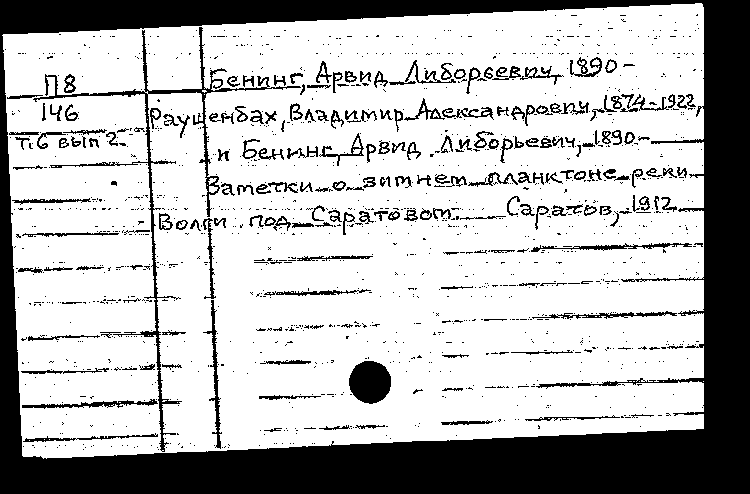 Бенинг, Арвид Либорьевич, 1890-
П8
146
Т.6 вып 2.
Раушенбах, Владимир Александрович, 1874-1922,
и Бенинг, Арвид Либорьевич, 1890-
Заметки о зимнем планктоне реки
Волги под Саратовом. Саратов, 1912